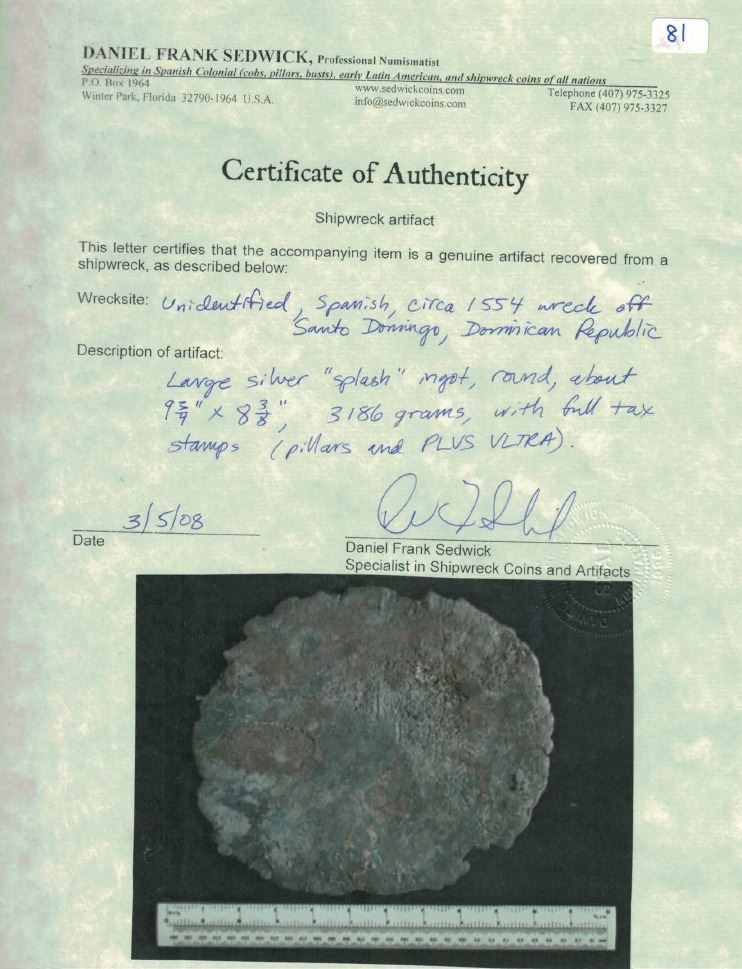 81
DANIEL FRANK SEDWICK, Professional Numismatist
Specializing in Spanish Colonial (cobs, pillars, busts), early Latin American, and shipwreck coins of all nations
P.O. Box 1964 www.sedwickcoins.com Telephone (407) 975-3325
Winter Park, Florida 32790-1964 U.S.A. info@sedwickcoins.com FAX (407) 975-3327
Certificate of Authenticity
Shipwreck artifact
This letter certifies that the accompanying item is a genuine artifact recovered from a
shipwreck, as described below:
Wrecksite: Unidentified, Spanish, circa 1554 wreck off
Santo Domingo, Dominican Republic
Description of artifact:
Large silver "splash" ingot, round, about
9 3/4" x 8 3/8", 3186 grams, with full tax
stamps (pillars and PLVS VLTRA).
3/5/08
Date
Daniel Frank Sedwick
Specialist in Shipwreck Coins and Artifacts